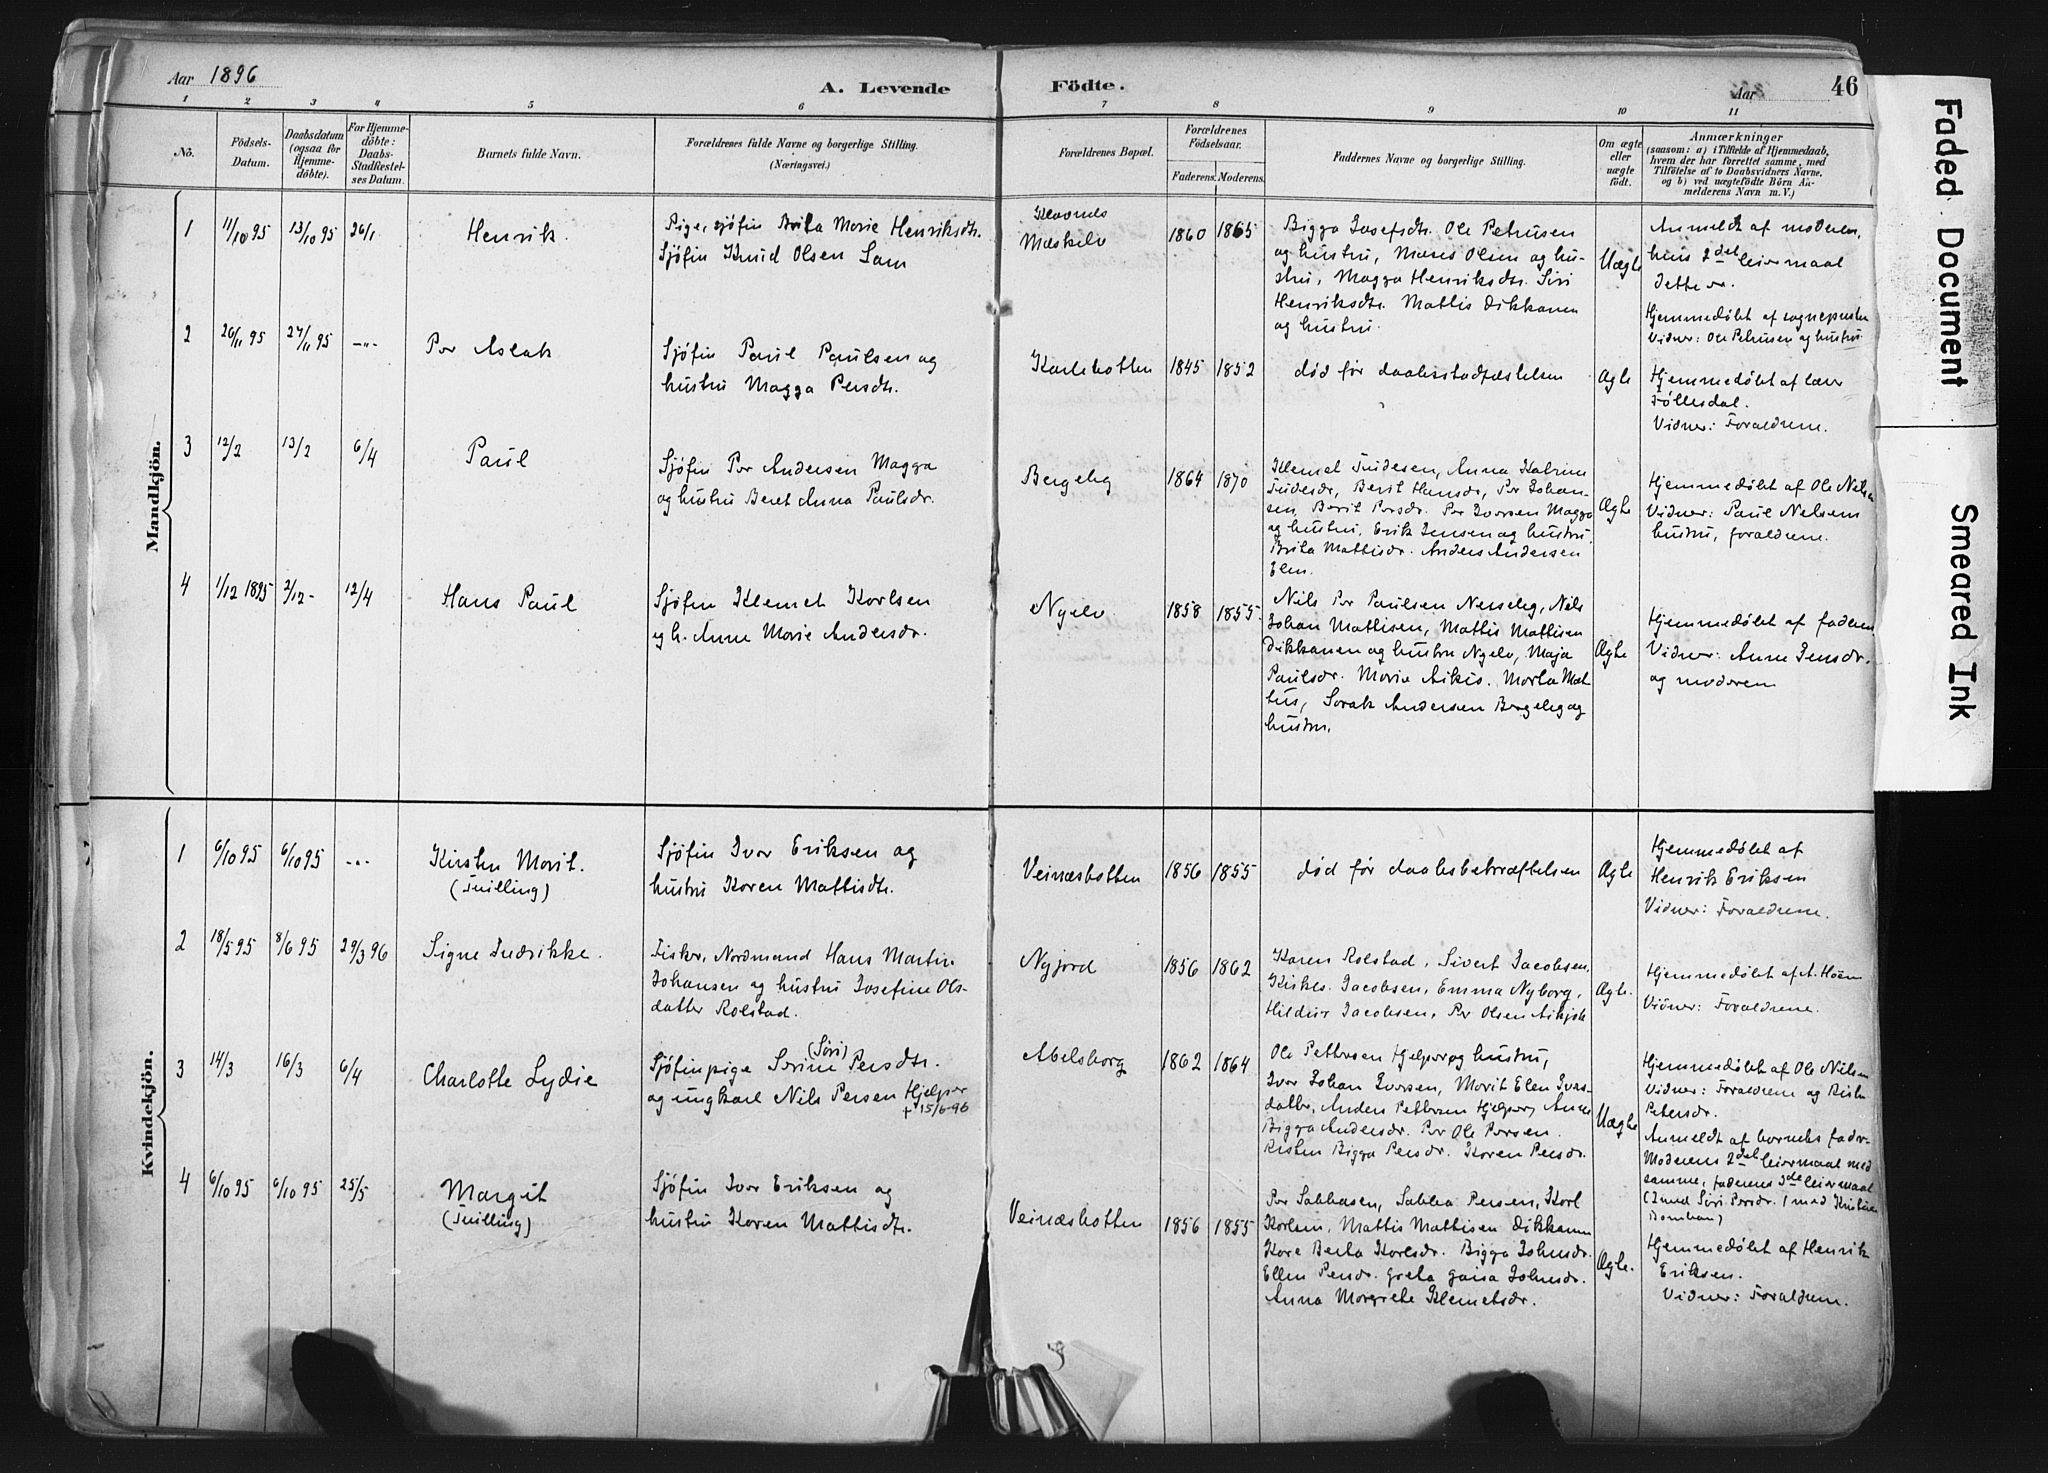 Aar 1896
A. Levende Födte.
Aar
46
1 2 3 4 5 6 7 8 9 10 11
No.
Födsels-
Datum.
Daabsdatum
(ogsaa for
Hjemme-
döbte).
For Hjemme-
döbte:
Daabs-
Stadfæstel-
ses Datum.
Barnets fulde Navn.
Forældrenes fulde Navne og borgerlige Stilling.
(Næringsvei.)
Forældrenes Bopæl.
Forældrenes
Födselsaar.
Faderens. Moderens.
Faddernes Navne og borgerlige Stilling.
Om ægte
eller
uægte
födt.
Anmærkninger
(saasom: a) i Tilfælde af Hjemmedaab,
hvem der har forrettet samme, med
Tilföielse af to Daabsvidners Navne,
og b) ved uægtefödte Börn An-
melderens Navn m. V.)
Mandkjön.
1
11/10 95
13/10 95
26/1
Henrik.
Pige, sjøfin Brita Marie Henriksdtr.
Sjøfin Knud Olsen Sam
Mæskelv
1860
1865
Bigga Josefsdtr. Ole Petrusen
og hustru, Mares Olsen og hu-
stru, Magga Henriksdtr. Siri
Henriksdtr. Mattis Dikkanen
og hustru.
Uægte
Anmeldt af moderen,
hus 2det leiermaal
dette er.
Hjemmedøbt af sognepresten
Vidner: Ole Petrusen og hustru.
2
26/11 95
27/11 95
-"-
Per Aslak
Sjøfin Paul Paulsen og
hustru Magga Persdtr.
Karlebotten
1845
1852
død før daabsstadfæstelsen
Ægte
Hjemmedøbt af lærer
Føllesdal.
Vidner: Forældrene.
3
12/2
13/2
6/4
Paul
Sjøfin Per Andersen Magga
og hustru Beret Anna Paulsdr.
Bergeby
1864
1870
Klemet Trudesen, Anna Katrine
Trudesdr, Berit Hansdr, Per Johan-
sen, Berit Persdr. Per Iversen Magga
og hustru, Erik Jensen og hustru
Brita Mattisdr. Anders Andersen
Elen.
Ægte
Hjemmedøbt af Ole Nilsen
Vidner: Paul Nilsens
hustru, forældrene.
4
1/12 1895
2/12 -
12/4
Hans Paul
Sjøfin Klemet Karlsen
og h. Anne Marie Andersdr.
Nyelv
1858
1855
Nils Per Paulsen Nesseby, Nils
Johan Mathisen, Mattis Mattisen
Dikkanen og hustru Nyelv, Maja
Paulsdr. Marie Aikio. Marta Mat-
tus, Sarak Andersen Bergeby og
hustru.
Ægte
Hjemmedøbt af faderen
Vidner: Anne Jensdr.
og moderen
Kvindekjön.
1
6/10 95
6/10 95
-"-
Kirsten Marit.
(Tvilling)
Sjøfin Iver Eriksen og
hustru Karen Mattisdtr.
Veinæsbotten
1856
1855
død før daabsbekræftelsen
Ægte
Hjemmedøbt af
Henrik Eriksen
Vidner: Forældrene.
2
18/5 95
8/6 95
29/3 96
Signe Fredrikke.
Fisker, Nordmand Hans Martin
Johansen og hustru Josefine Ols-
datter Rolstad.
Nyjord
1856
1862
Karen Rolstad, Sivert Jacobsen,
Kirkes. Jacobsen, Emma Nyborg,
Hildur Jacobsen, Per Olsen Aikjok
Ægte.
Hjemmedøbt af A. Høem
Vidner: Forældrene.
3
14/3
16/3
6/4
Charlotte Lydie
Sjøfinpige Serine (Siri) Persdtr.
og ungkarl Nils Persen Hjelper
+ 15/6-96
Abelsborg
1862
1864
Ole Pettersen Hjelper og hustru,
Iver Johan Iversen, Marit Elen Ivers-
datter, Anders Pettersen Hjelper, Anne
Bigga Andersdr. Per Ole Persen.
Kirsten Bigga Persdr. Karen Persdr.
Uægte
Hjemmedøbt af Ole Nilsen
Vidner: Forældrene og
Petersdr.
Anmeldt af barnets fader
Moderens 2det leiermaal med
samme, faderens 3de leiermaal
(2 med Siri Persdr. 1 med Kristine
4
6/10 95
6/10 95
25/5
Margit
(Tvilling)
Sjøfin Iver Eriksen og
hustru Karen Mattisdtr.
Veinæsbotten
1856
1855
Per Sabbasen, Sabba Persen, Karl
Karlsen, Mattis Mattisen Dikkanen
Kare Berta Karlsdr. Bigga Johnsdr.
Ellen Persdr. Greta Gaisa Johnsdr.
Anna Margrete Klemetsdr.
Ægte.
Hjemmedøbt af Henrik
Eriksen.
Vidner: Forældrene.
Faded Document
Smeared Ink